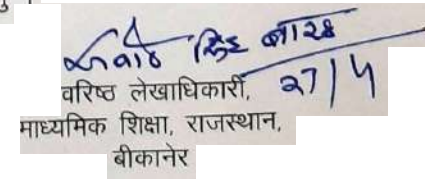 सिंह बारठ
27/4
वरिष्ठ लेखाधिकारी,
माध्यमिक शिक्षा, राजस्थान,
बीकानेर